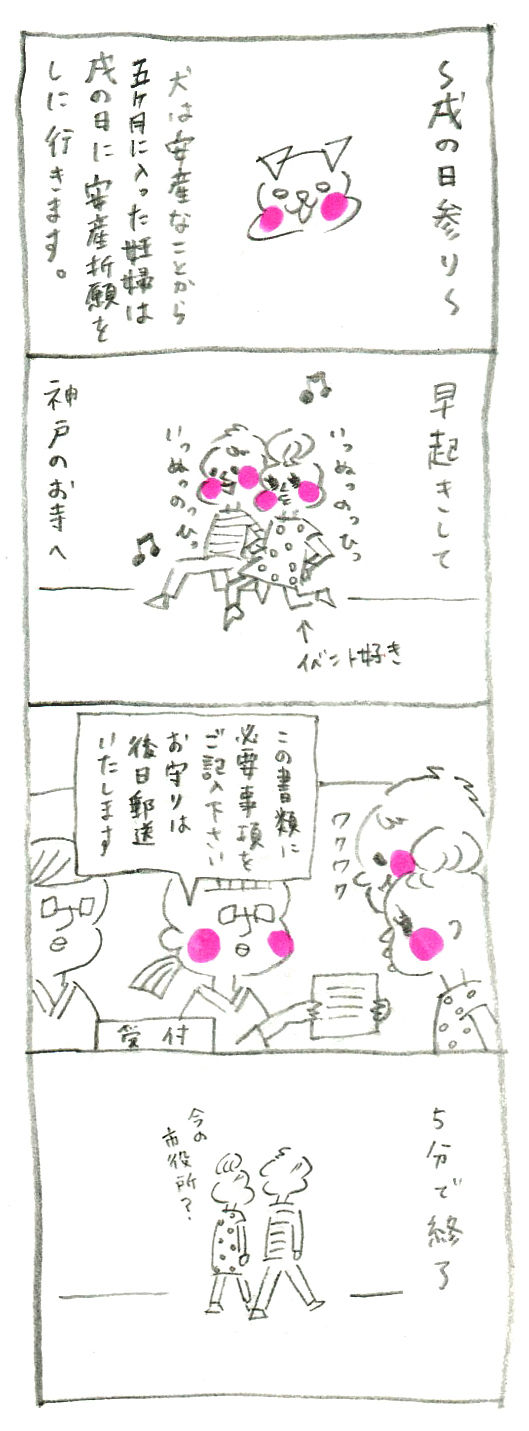 〜戌の日参り〜
犬は安産なことから
五ケ月に入った妊婦は
戌の日に安産祈願を
しに行きます。
早起きして
いっぬっのっひっ
いっぬっのっひっ
イベント好き
神戸のお寺へ
ワクワク
この書類に
必要事項を
ご記入下さい
お守りは
後日郵送
いたします
受付
5分で終了
今の
市役所?